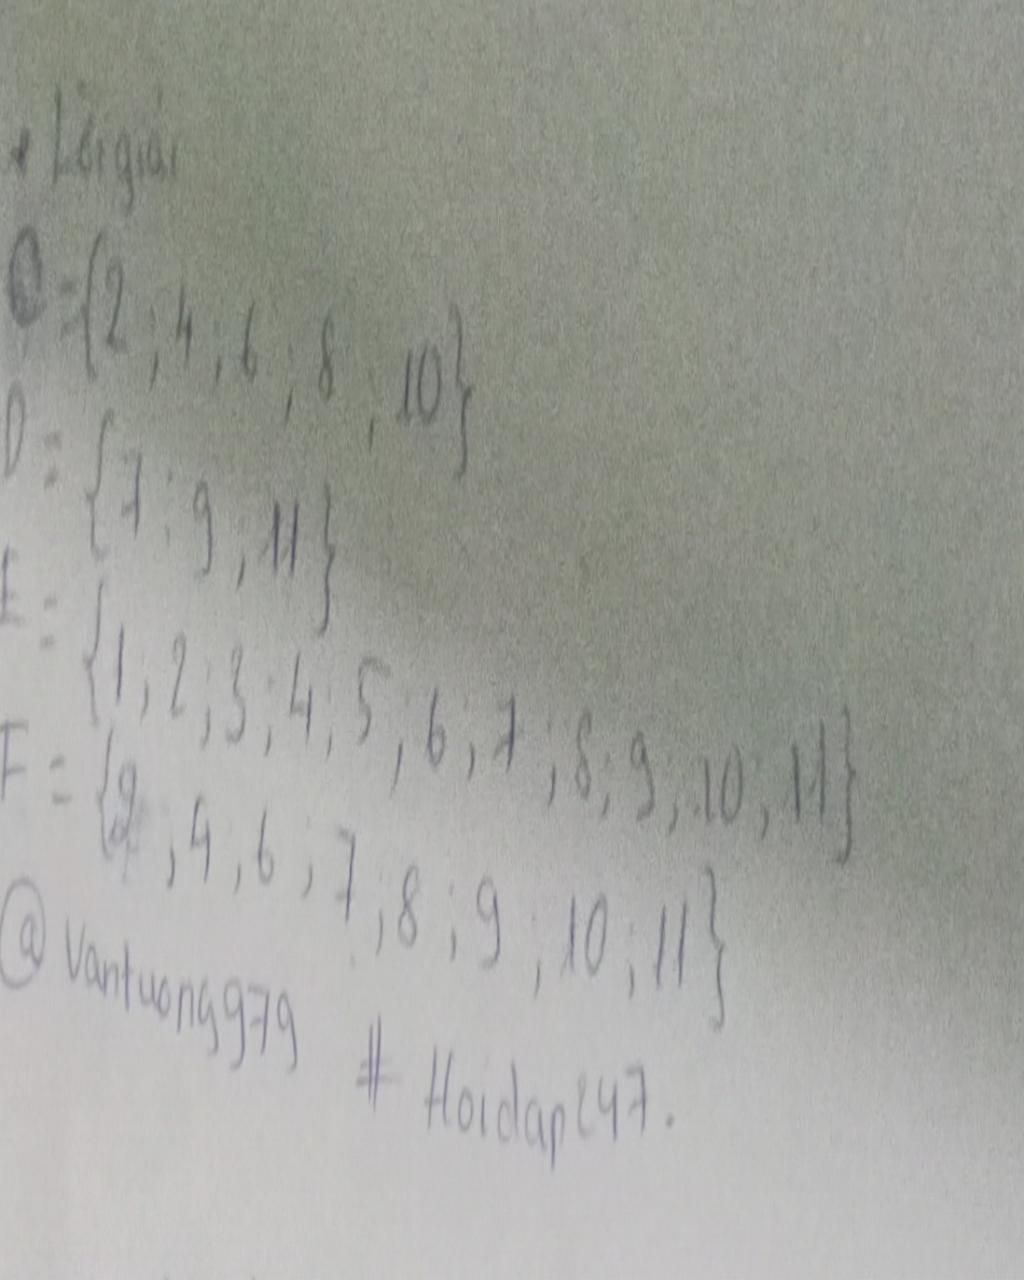 * Lời giải
C = {2 ; 4 ; 6 ; 8 ; 10}
D = {7 ; 9 ; 11}
E = {1 ; 2 ; 3 ; 4 ; 5 ; 6 ; 7 ; 8 ; 9 ; 10 ; 11}
F = {2 ; 4 ; 6 ; 7 ; 8 ; 9 ; 10 ; 11}
@ vantuong979 # Hoidap247.